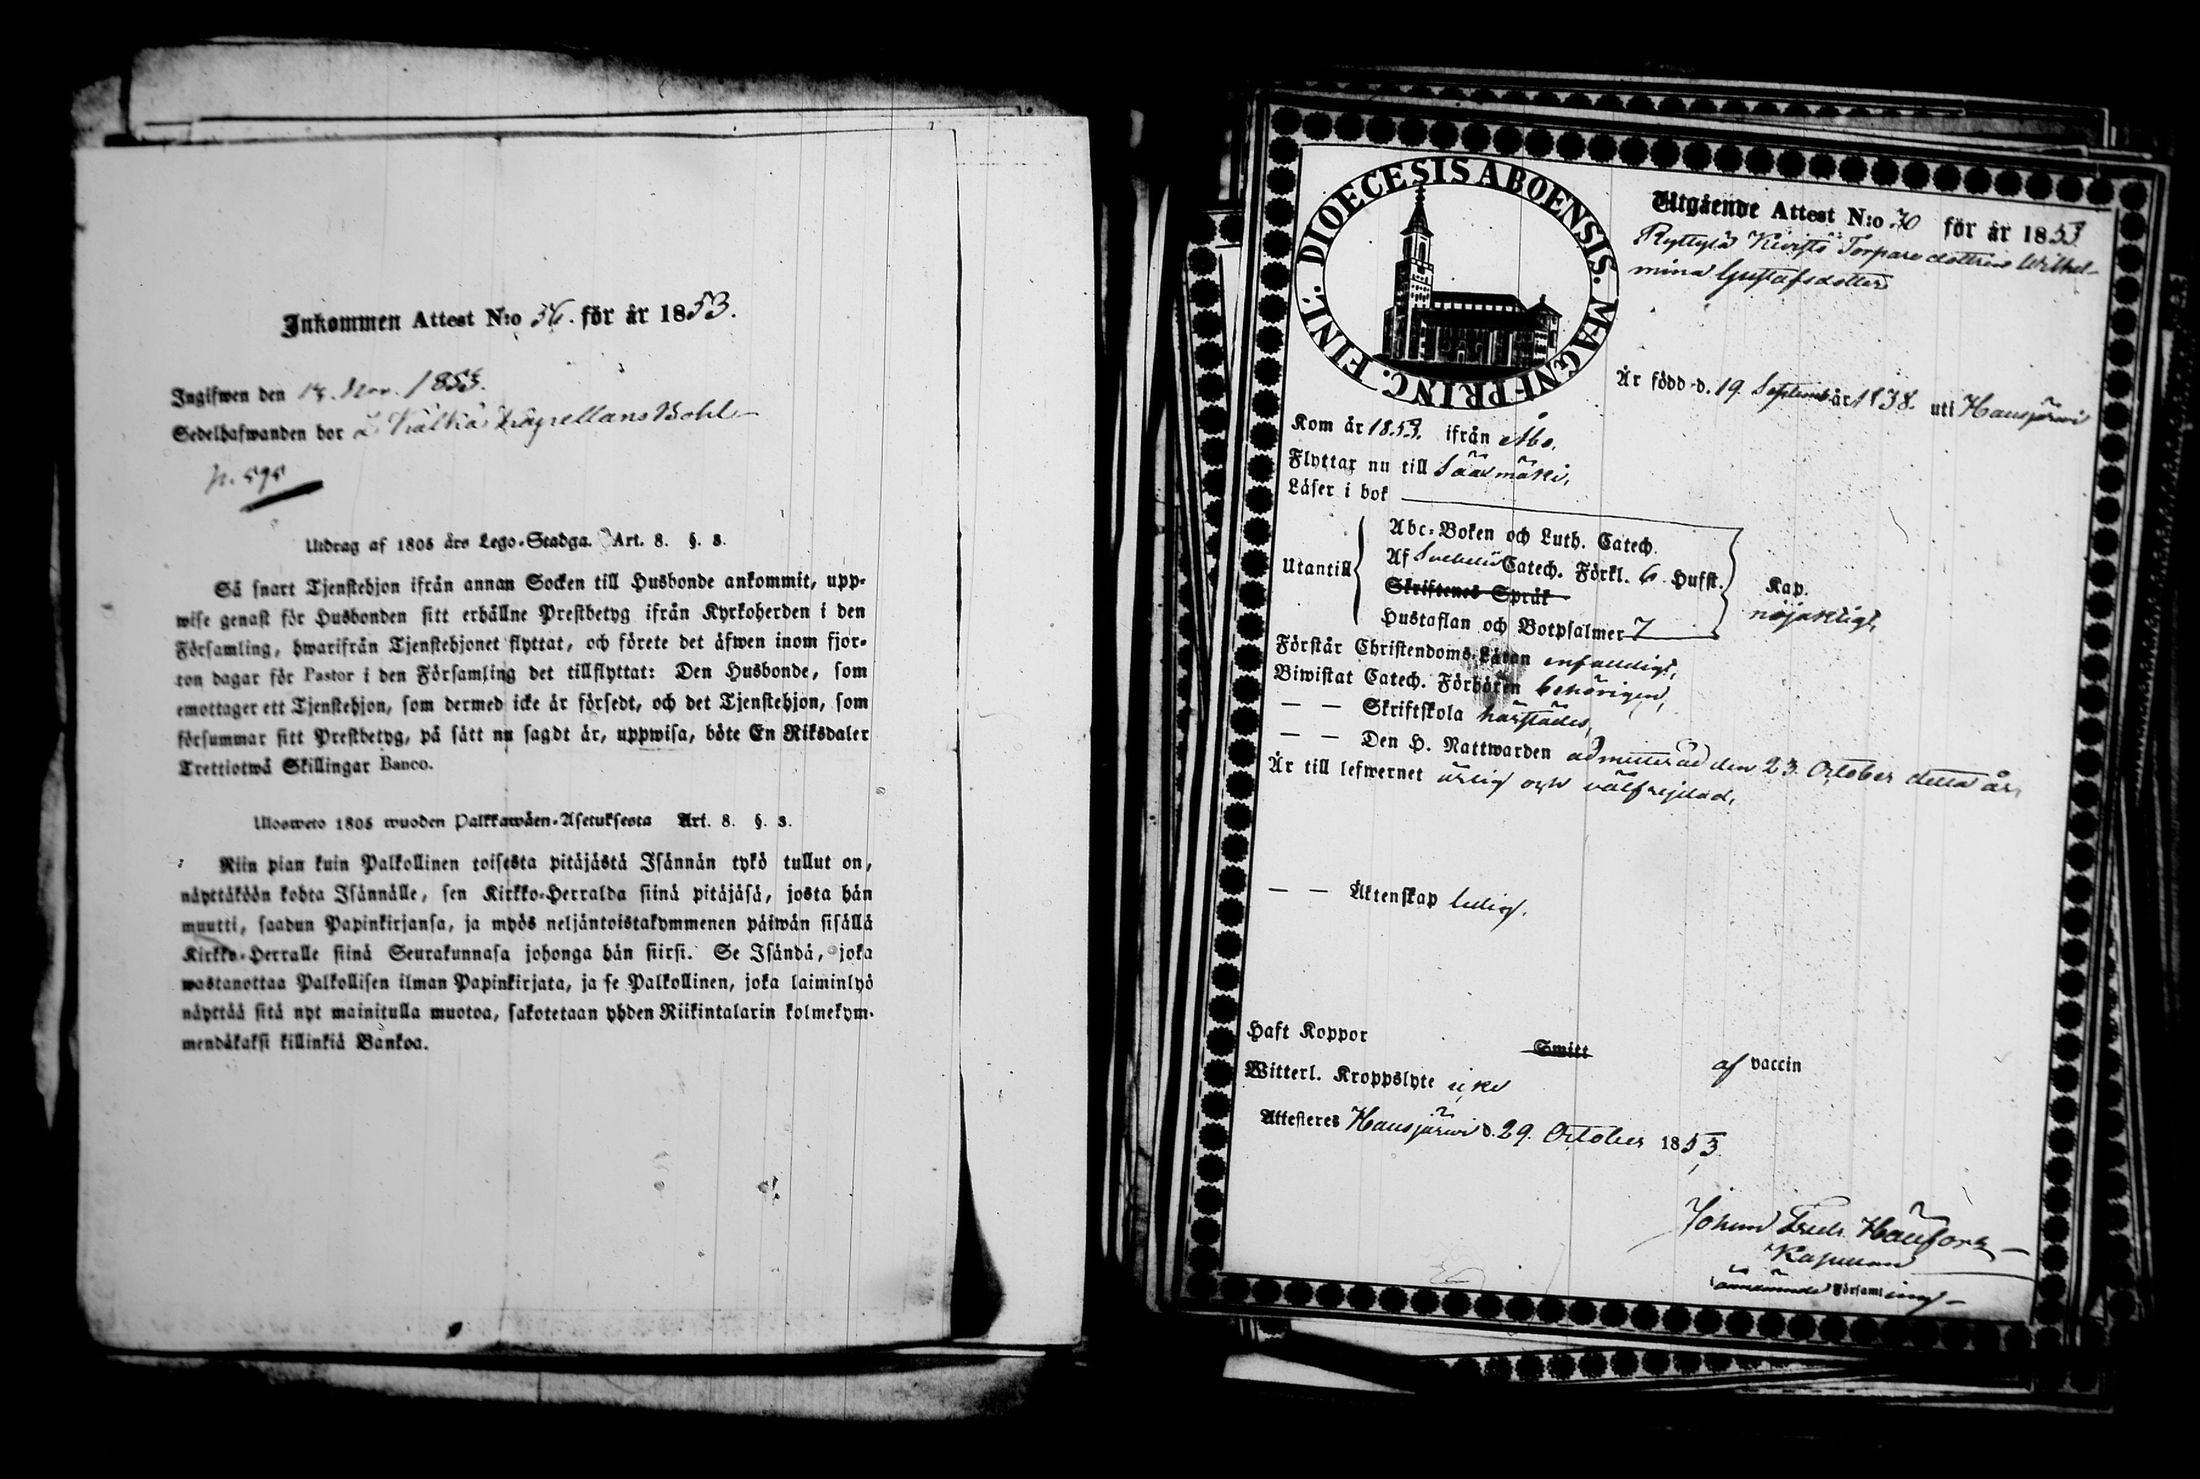 Inkommen Attest N:o 56. för år 1853.
Ingifwen den 18. Nov. 1853.
Sedelhafwanden bor L. Kälkä Kapellans Bohl
p. 595
Utdrag af 1805 års Lego-Stadga. Art. 8. §. 3.
Så snart Tjenstehjon ifrån annan Socken till Husbonde ankommit, upp-
wise genast för Husbonden sitt erhållne Prestbetyg ifrån Kyrkoherden i den
Församling, hwarifrån Tjenstehjonet flyttat, och förete det äfwen inom fjor-
ton dagar för Pastor i den Församling det tillflyttat: Den Husbonde, som
emottager ett Tjenstehjon, som dermed icke är försedt, och det Tjenstehjon, som
försummar sitt Prestbetyg, på sätt nu sagdt är, uppwisa, böte En Riksdaler
Trettiotwå Skillingar Banco.
Ulosweto 1805 wuoden Palkkawäen-Asetuksesta Art. 8. §. 3.
Niin pian kuin Palkollinen toisesta pitäjästä Isännän tykö tullut on,
näyttäköön kohta Isännälle, sen Kirkko-Herralda siinä pitäjäsä, josta hän
muutti, saadun Papinkirjansa, ja myös neljäntoistakymmenen päiwän sisällä
Kirkko-Herralle siinä Seurakunnasa johonga hän siirsi. Se Isändä, joka
wastanottaa Palkollisen ilman Papinkirjata, ja se Palkollinen, joka laiminlyö
näyttää sitä nyt mainitulla muotoa, sakotetaan yhden Riikintalarin kolmekym-
mendäkaksi killinkiä Bankoa.
DIOECESIS ABOENSIS. MAGNI PRINC. FINL.
Utgående Attest N:o 30 för år 1853
Ryttylä Kivistö Torparedottren Wilhel-
mina Gustafsdotter
Är född d. 19 September år 1838. uti Hausjärvi
Kom år 1853. ifrån Åbo.
Flyttar nu till Sääxmäki,
Läser i bok
Utantill
Abc-Boken och Luth. Catech.
Af Svebelii Catech. Förkl. 6 Hufst.
Skriftenes Språk
Hustaflan och Botpsalmer 7
Kap.
nöjaktligt,
Förstår Christendoms-Läran enfaldigt,
Biwistat Catech. Förhören behörigen,
— — Skriftskola härstädes,
— — Den H. Nattwarden admitterad den 23 October detta år,
Är till lefwernet ärlig och välfrejdad,
— — Äktenskap ledig.
Haft Koppor Smitt af vaccin
Witterl. Kroppslyte icke
Attesteres Hausjärvi d. 29. October 1853
Johan Fredr. Häufors
Kapellan
i ofannämnde Församling